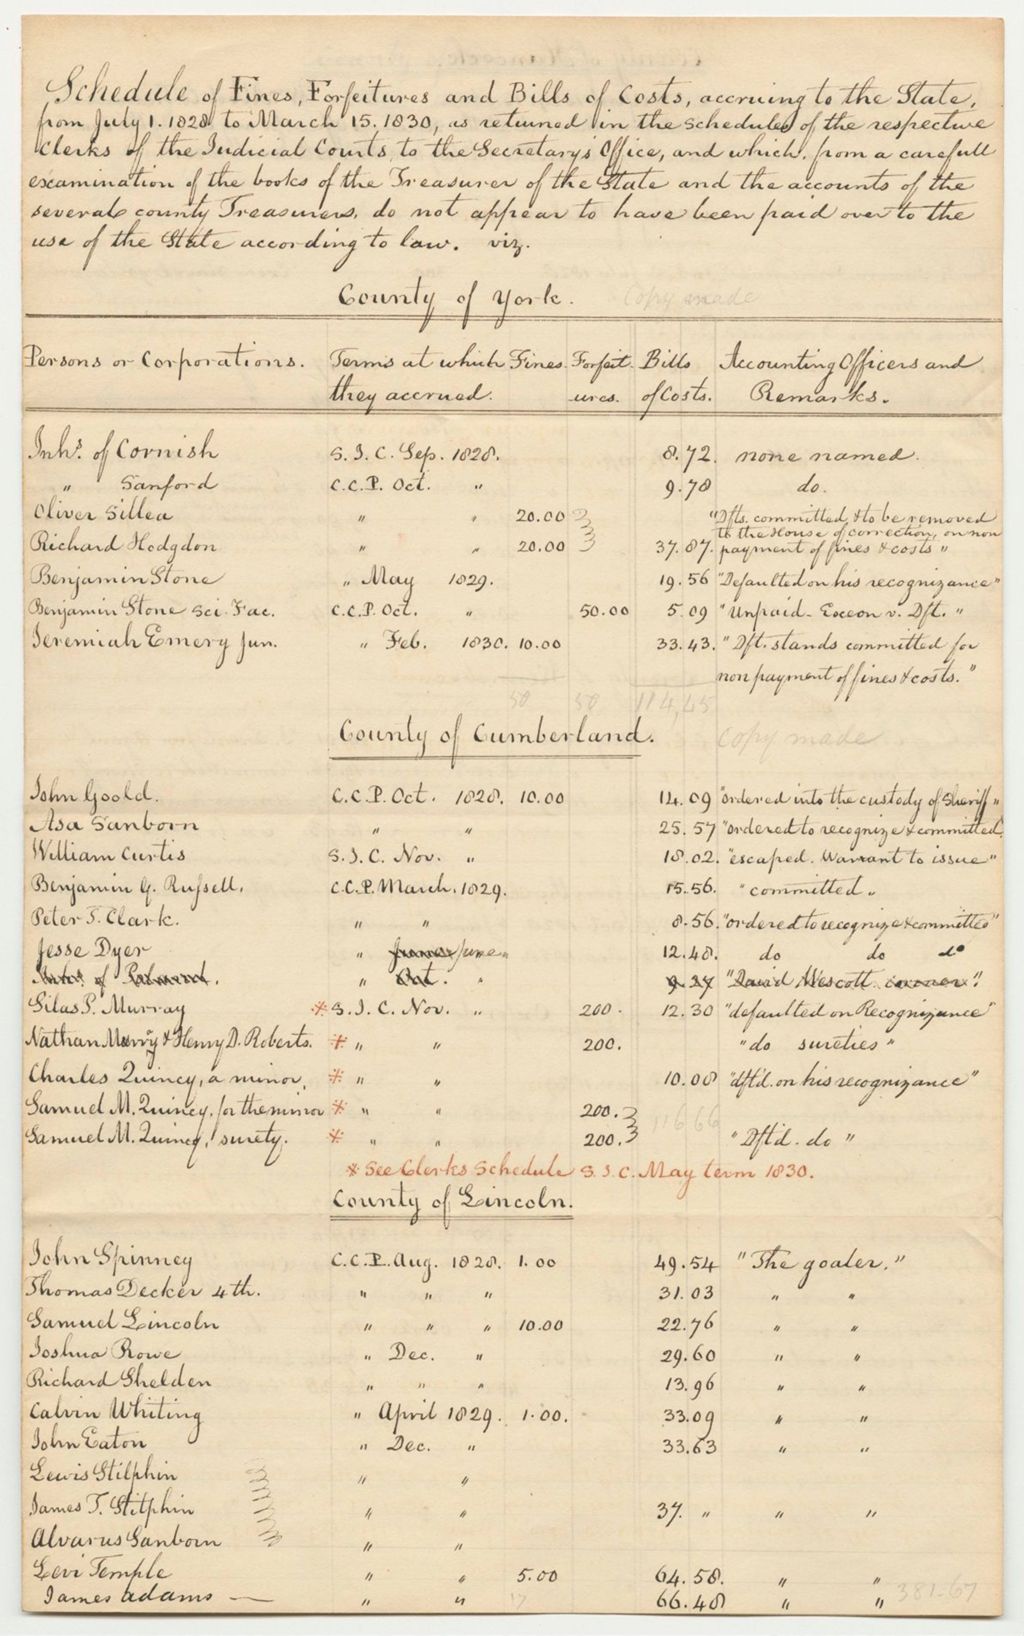 Schedule of Fines, Forfeitures and Bills of Costs, accruing to the State,
from July 1. 1828 to March 15. 1830, as returned in the schedules of the respective
Clerks of the Judicial Courts, to the Secretarys Office, and which, from a carefull
examination of the books of the Treasurer of the State and the accounts of the
several county Treasurers, do not appear to have been paid over to the
use of the State according to law. viz.
County of York. Copy made
Persons or Corporations. Terms at which they accrued. Fines. Forfeit-ures. Bills of Costs. Accounting Officers and Remarks.
Inhs. of Cornish S. J. C. Sep. 1828. 8.72. none named.
" Sanford C.C.P. Oct. " 9.78 do.
Oliver Sillea " " 20.00 "Dfts. committed & to be removed
to the House of correction, on non
Richard Hodgdon " " 20.00 37.87. payment of fines & costs "
Benjamin Stone " May 1829. 19.56 "Defaulted on his recognizance"
Benjamin Stone Sci. Fac. C.C.P. Oct. " 50.00 5.09 "Unpaid- Execon v. Dft. "
Jeremiah Emery Jun. " Feb. 1830. 10.00 33.43. " Dft. stands committed for
non payment of fines & costs."
50 50 114,45
County of Cumberland. Copy made
John Goold. C.C.P. Oct. 1828. 10.00 14.09 "ordered into the custody of Sheriff "
Asa Sanborn " " 25.57 "ordered to recognize & committed
William Curtis S.J.C. Nov. " 18.02. "escaped. Warrant to issue"
Benjamin G. Russell. C.C.P. March. 1829. 15.56. " committed "
Peter T. Clark. " " 8.56. "ordered to recognize & committed"
Jesse Dyer " June " 12.48. do do do
Inhs. of " Oct. " 9.27 "David Wescott "
Silas P. Murray * S.J.C. Nov. " 200. 12.30 "defaulted on Recognizance"
Nathan Murry & Henry D. Roberts. * " " 200. " do sureties "
Charles Quincy, a minor, * " " 10.08 "dftd. on his recognizance"
Samuel M. Quincy, for the minor * " " 200. 116 66
Samuel M. Quincy, surety. * " " 200. " Dftd. do "
* See Clerks Schedule S.J.C. May term 1830.
County of Lincoln.
John Spinney C.C.P. Aug. 1828. 1.00 49.54 " The goaler."
Thomas Decker 4th. " " " 31.03 " "
Samuel Lincoln " " " 10.00 22.76 " "
Joshua Rowe " Dec. " 29.60 " "
Richard Shelden " " " 13.96 " "
Calvin Whiting " April 1829. 1.00. 33.09 " "
John Eaton " Dec. " 33.63 " "
Lewis Stilphin " "
James T. Stilphin " " 37. " " "
Alvarus Sanborn " "
Levi Temple " " 5.00 64.58. " "
James Adams — " " 17 66.48 " " 381.67